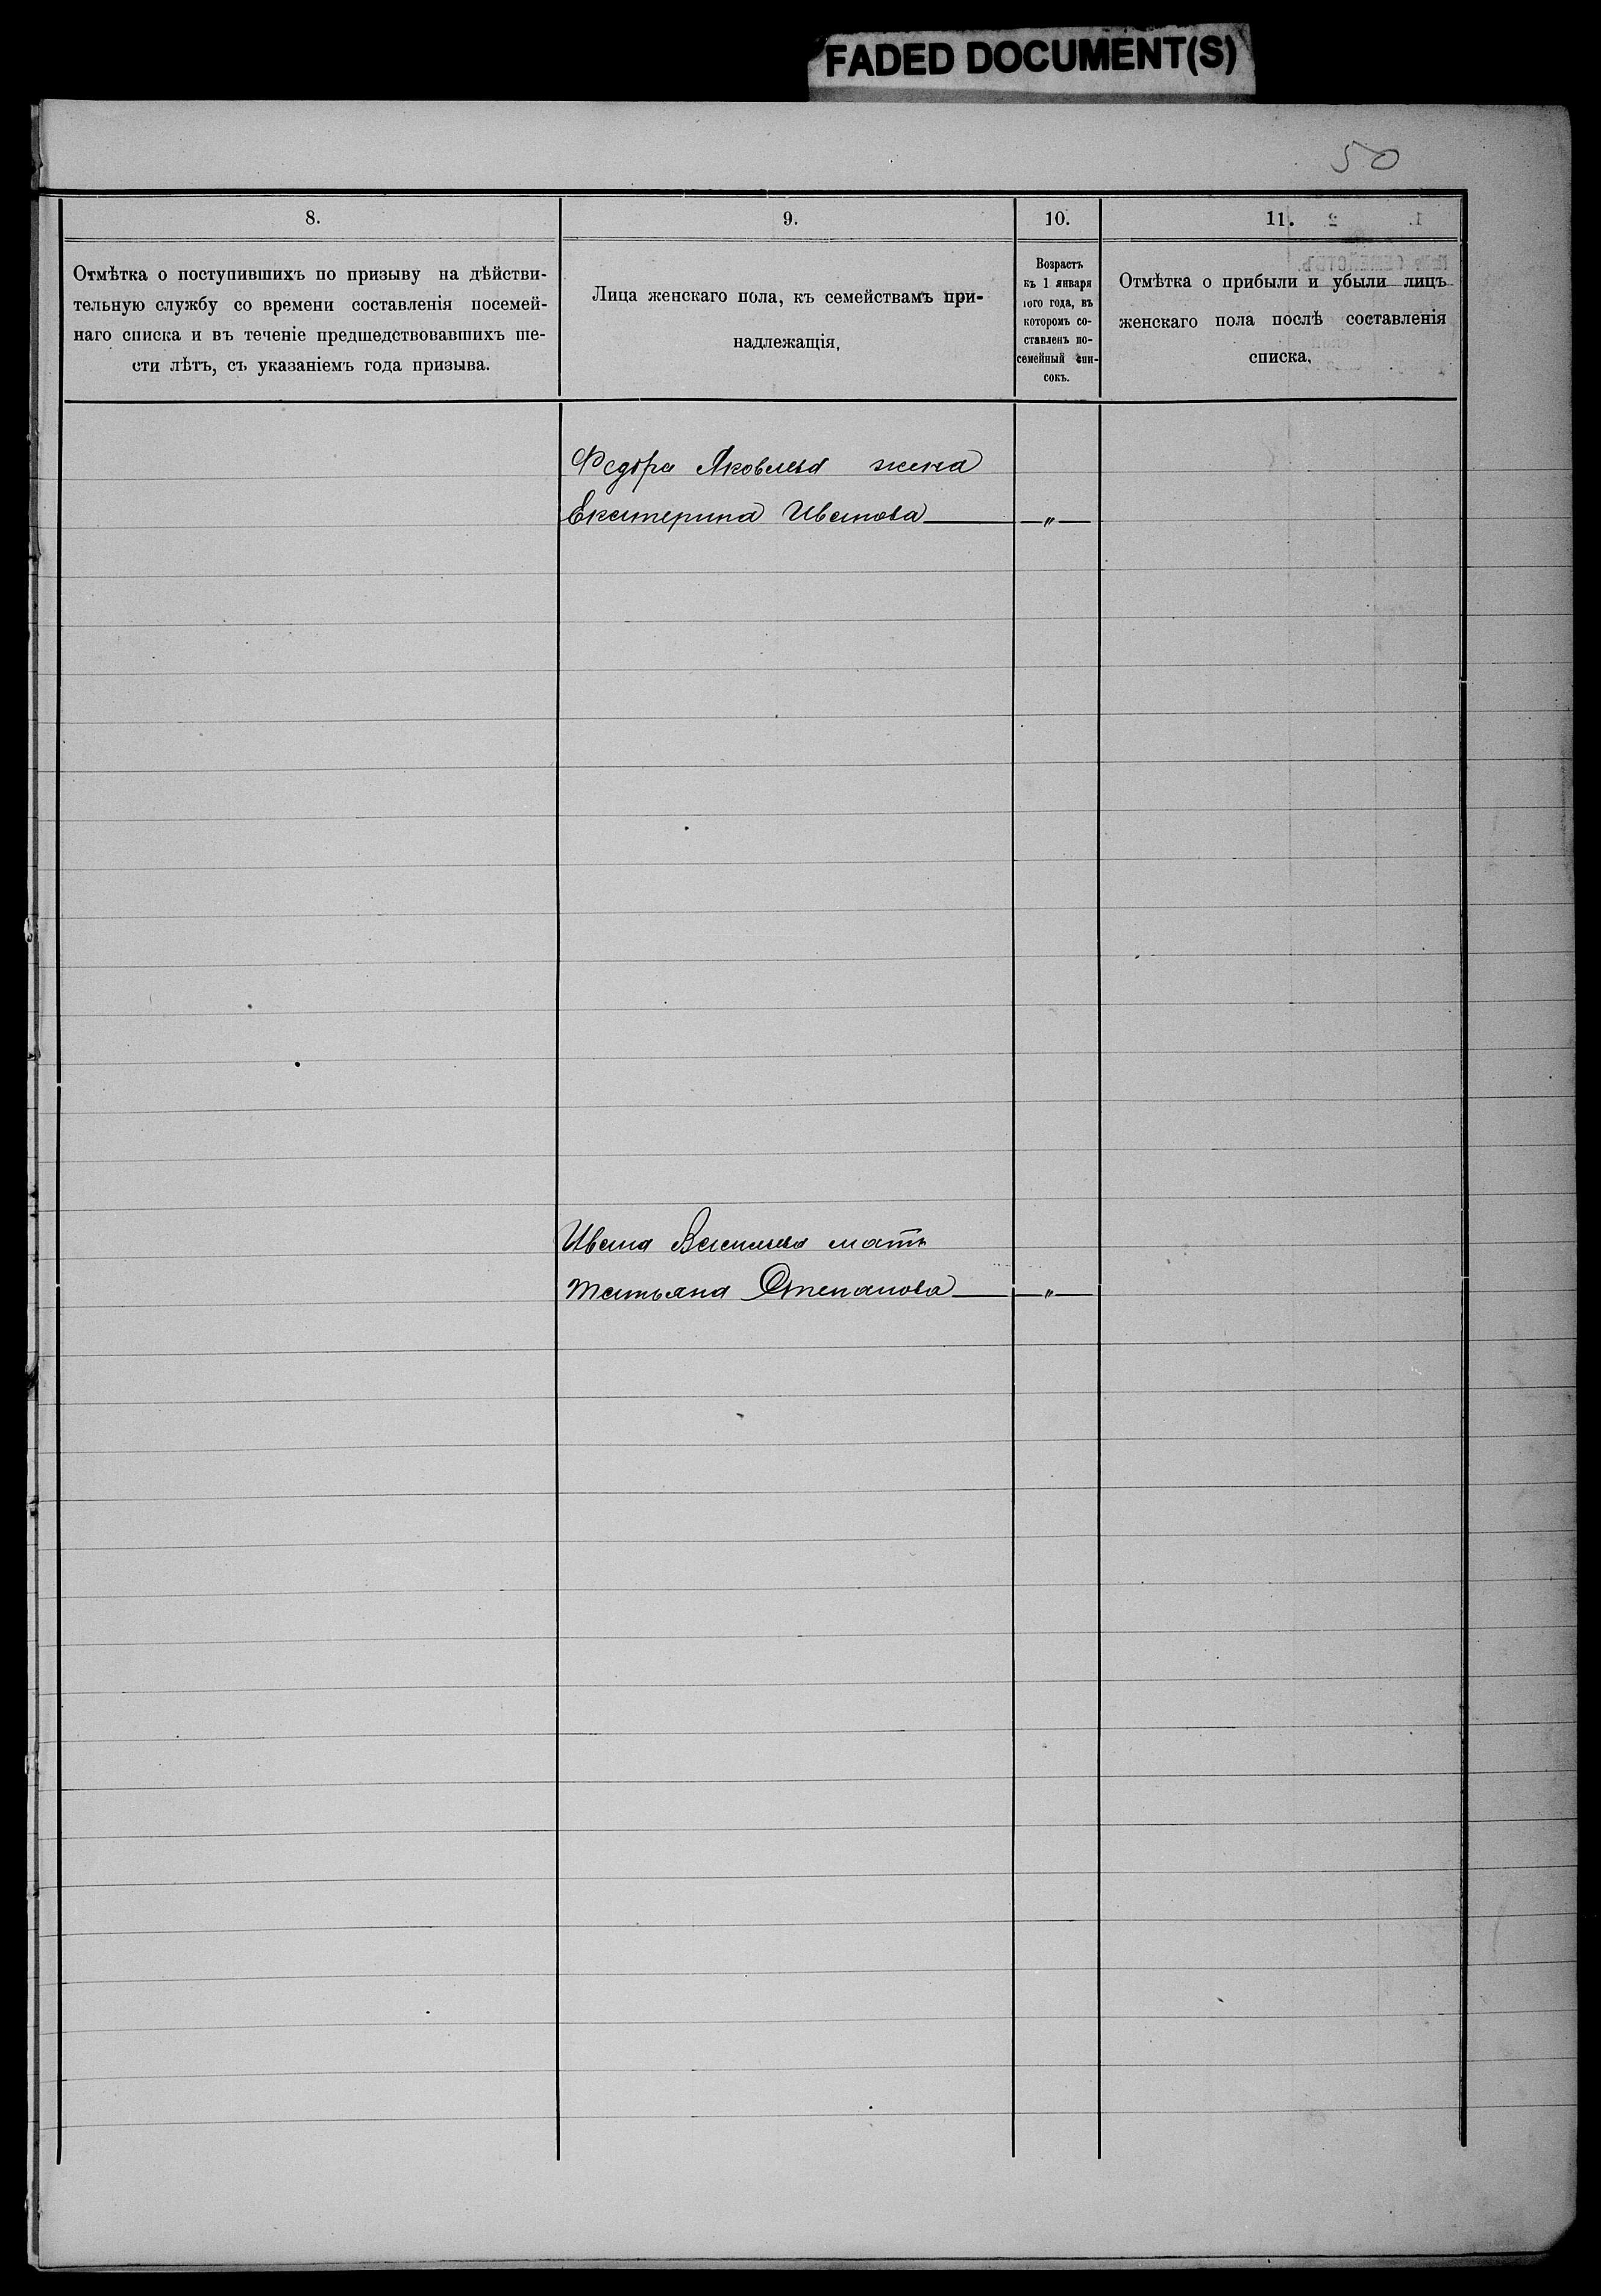 FADED DOCUMENT(S)
50
8.
Отмѣтка о поступившихъ по призыву на дѣйстви-
тельную службу со времени составленія посемей-
наго списка и въ теченіе предшедствовавшихъ ше-
сти лѣтъ, съ указаніемъ года призыва.
9.
Лица женскаго пола, къ семействамъ при-
надлежащія,
10.
Возрастъ
къ 1 января
того года, въ
которомъ со-
ставленъ по-
семейный спи-
сокъ.
11.
Отмѣтка о прибыли и убыли лицъ
женскаго пола послѣ составленія
списка.
Федора Яковлева жена
Екатерина Иванова — „ —
Ивана Васильева мать
Татьяна Степанова — „ —